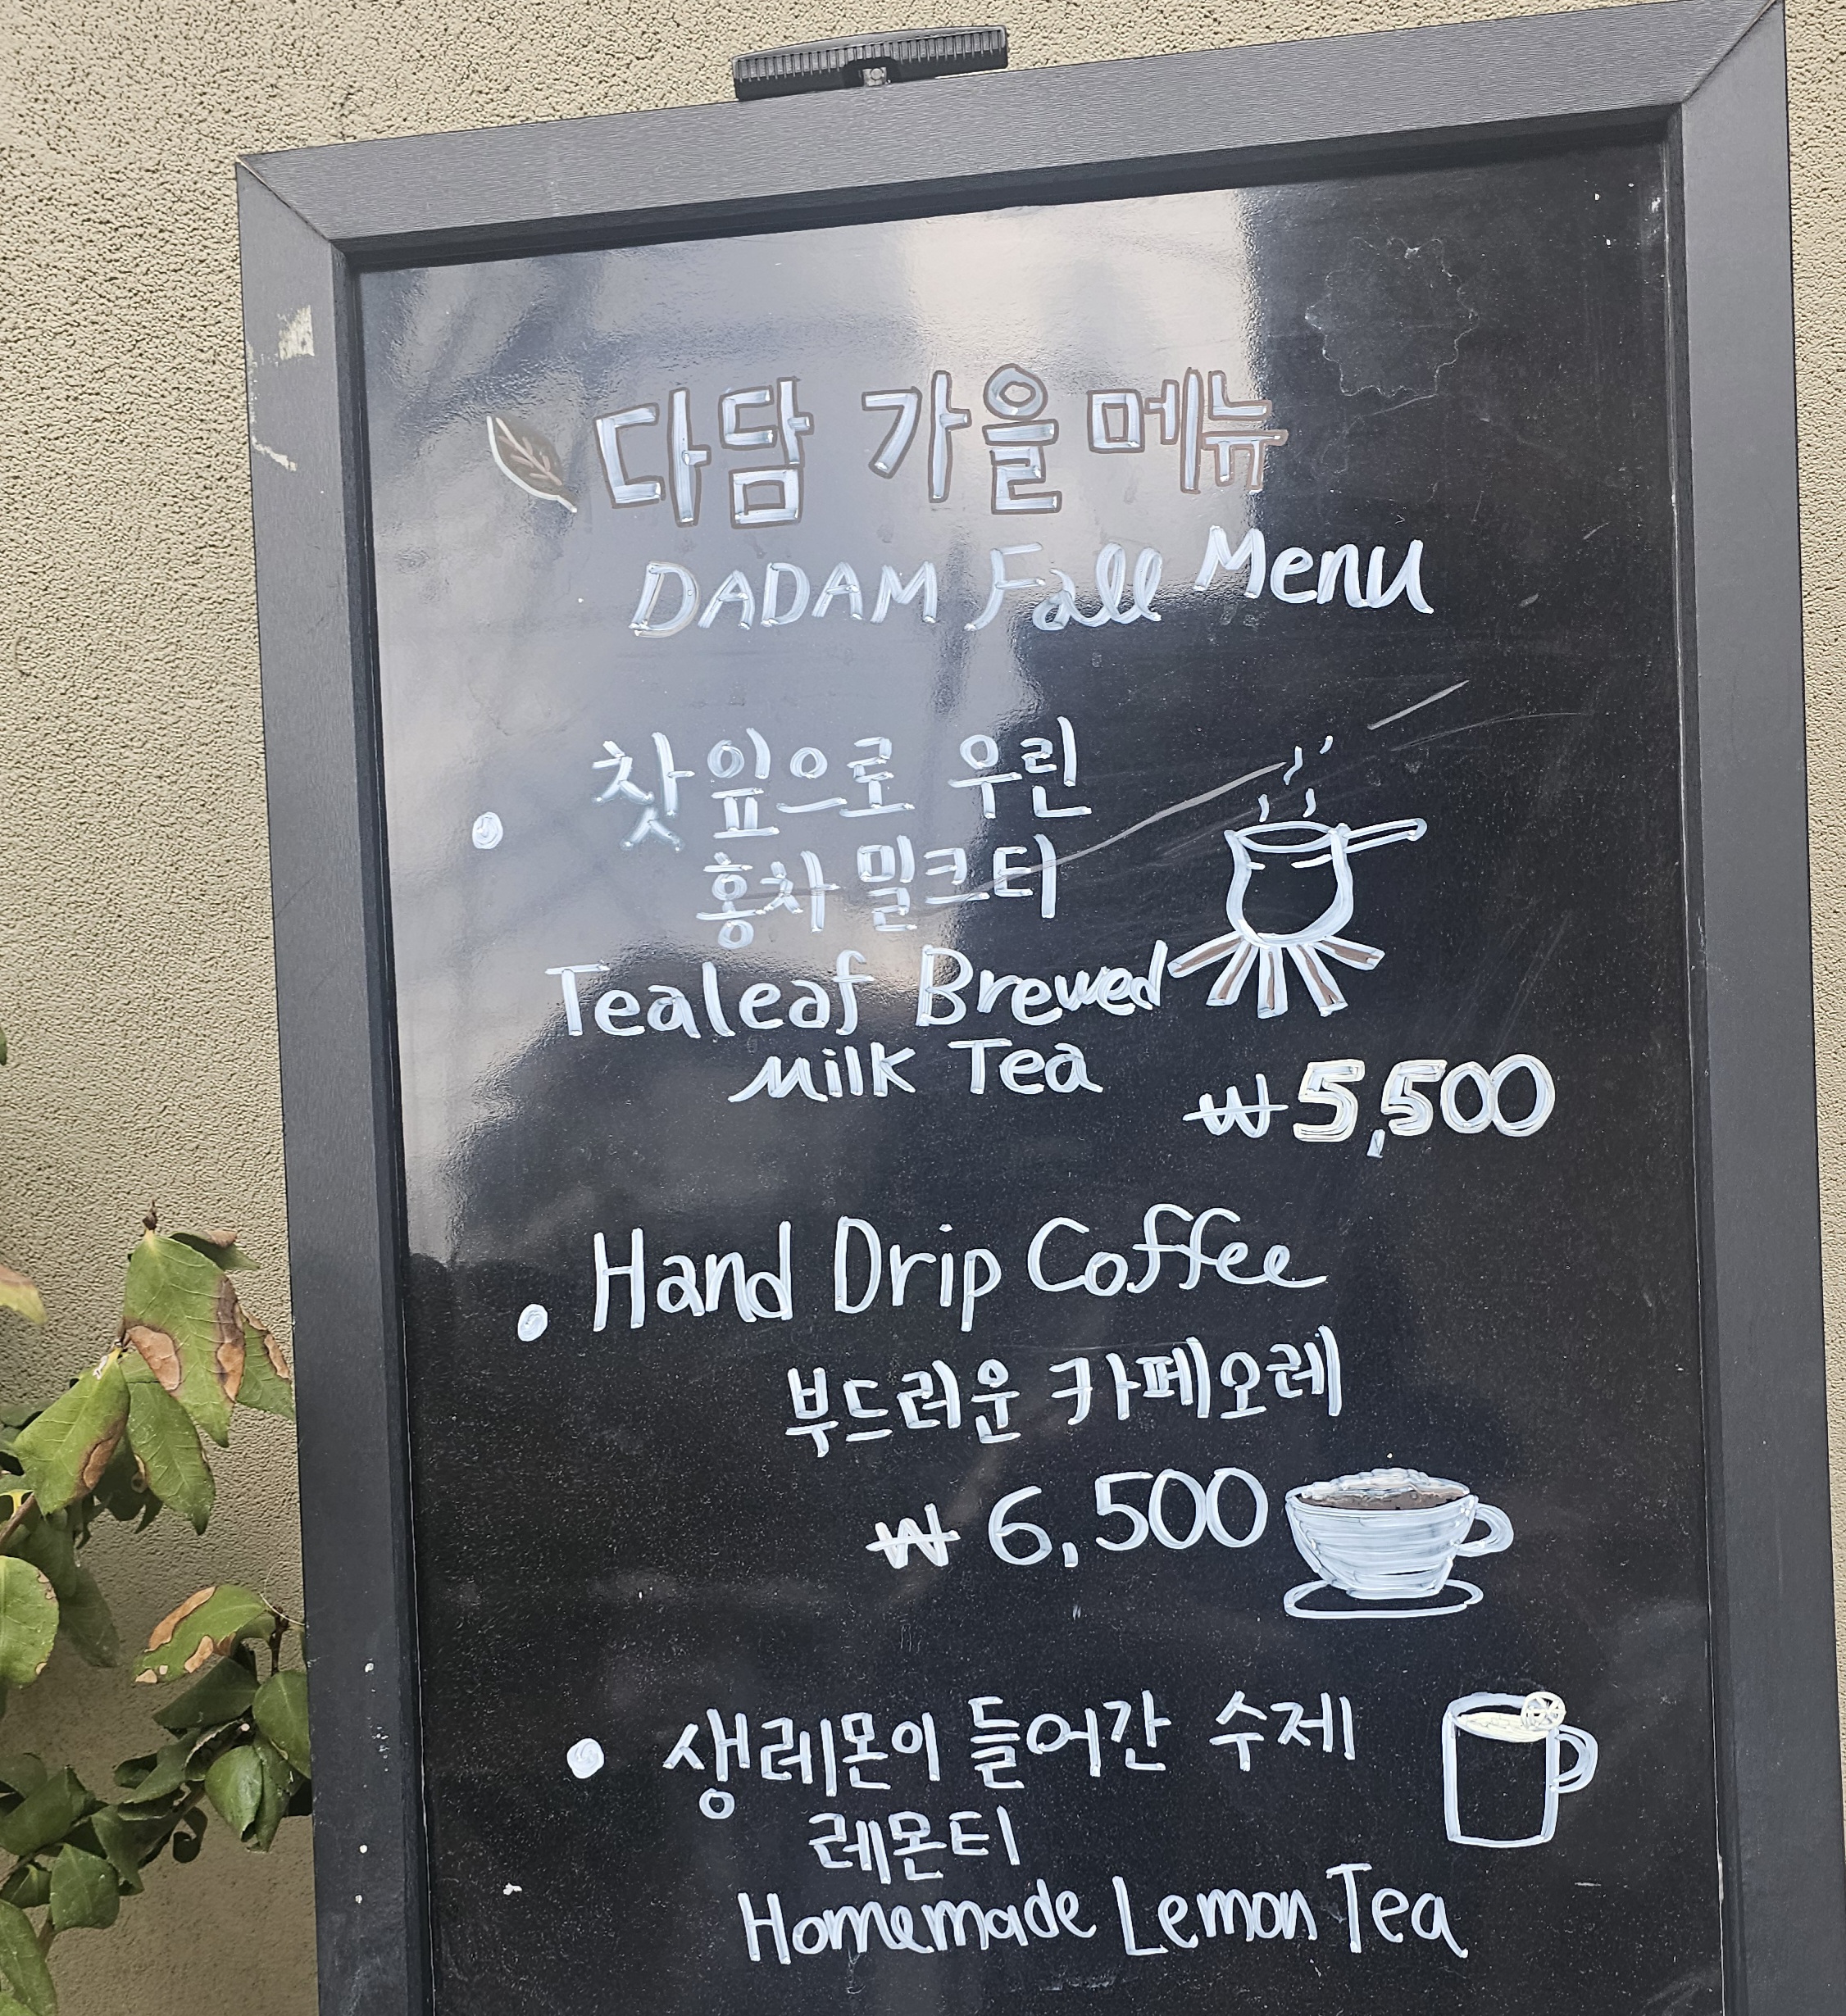 다담 가을 메뉴
DADAM Fall Menu
찻잎으로 우린
홍차 밀크티
Tealeaf Brewed
Milk Tea
₩5,500
Hand Drip Coffee
부드러운 카페오레
₩6,500
생레몬이 들어간 수제
레몬티
Homemade Lemon Tea